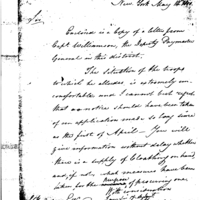 New York May 16
Sir
Enclosed is a copy of a letter from
Capt Williamson, the Deputy Paymaster
General in this district.
The situation of the troops
to which he alludes is extremely un-
comfortable and I cannot but regret
that no notice should have been taken
of our application made so long since
as the first of April— You will
give information without delay whether
there is a supply of Cloathing on hand
and, if not, what measures have been
taken for the purpose of procuring one
With consideration